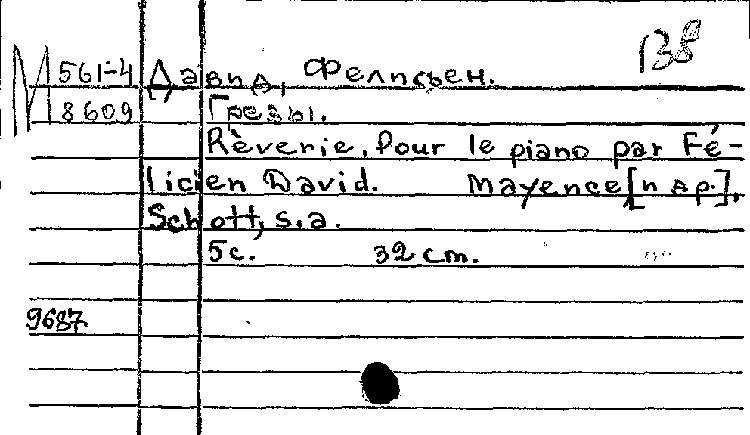 138
М 561-4 Давид, Фелисьен.
8609 Грезы.
Rèverie, Pour le piano par Fé-
licien David. Mayence [и др.],
Schott, s.a.
5с. 32 cm.
9687